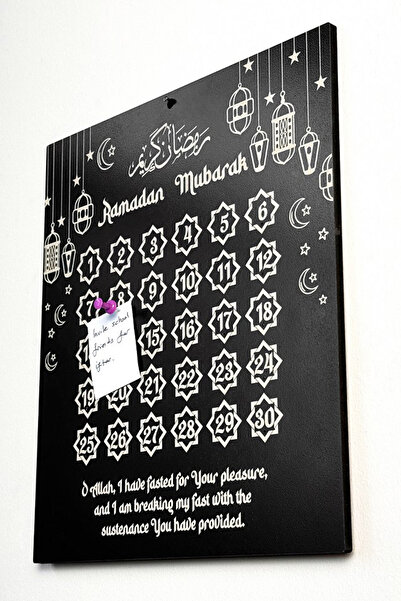 رمضان كريم
Ramadan Mubarak
1 2 3 4 5 6
8 9 10 11 12
15 16 17 18
21 22 23 24
19 20
25 26 27 28 29 30
Invite school
friends for
iftar.
O Allah, I have fasted for Your pleasure,
and I am breaking my fast with the
sustenance You have provided.